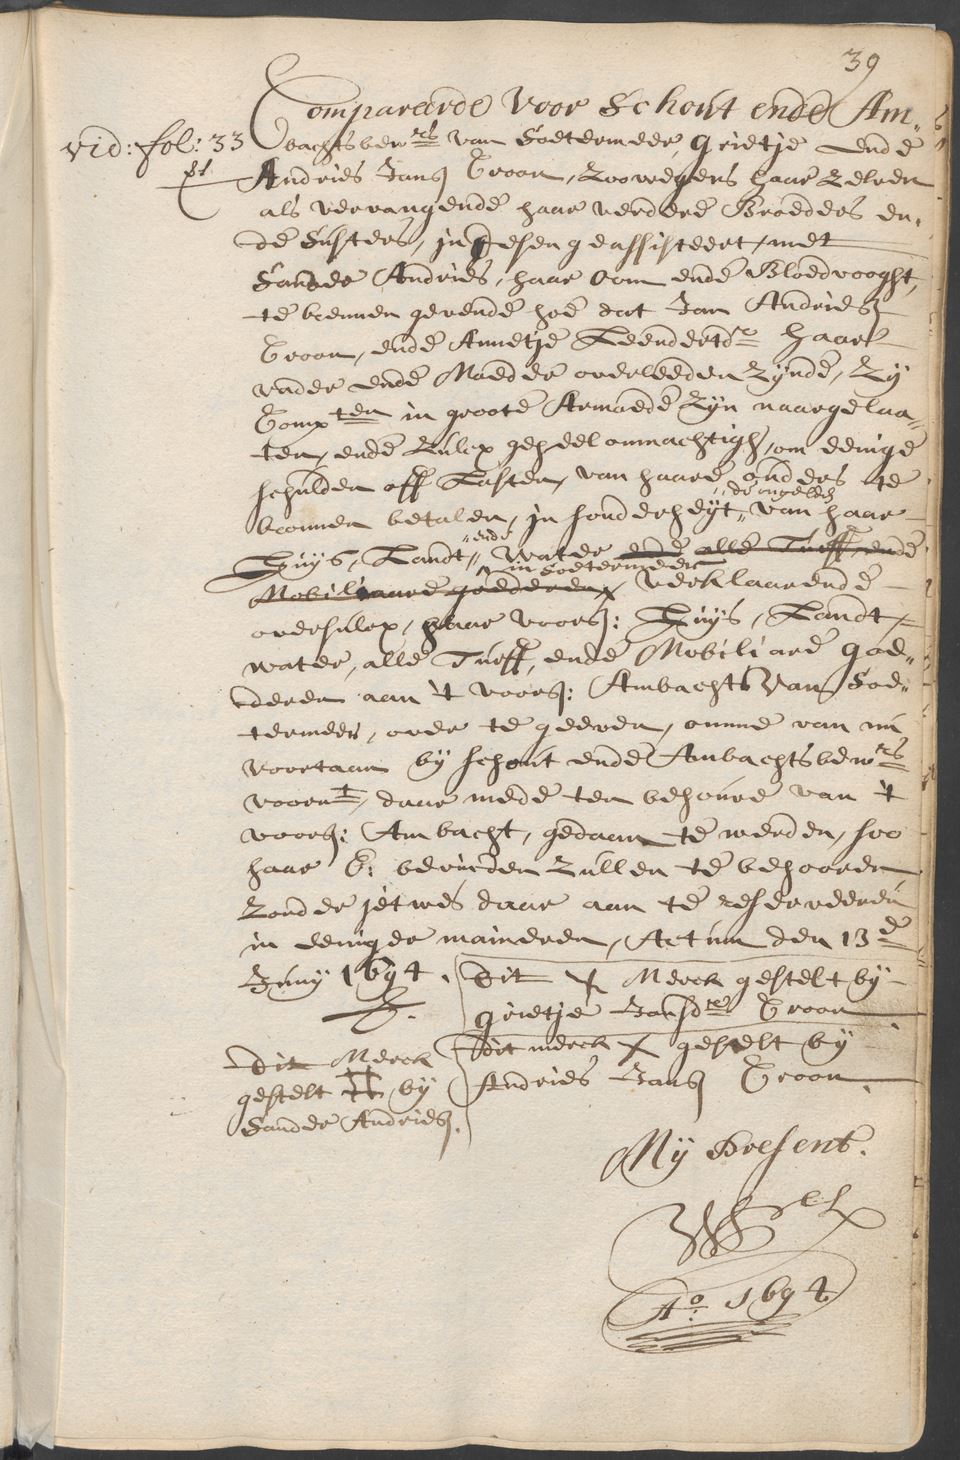 39
Compareerde Voor Schout ende Am-
vid: fol: 33
bachtsbew:rs van Soetermeer, Grietje ende
Andries Jansz Croon, Zoo wegens haar Zelven
als vervangende haar verdere Broeders en-
de Susters, in desen geassisteert, met
Sander Andries, haar oom ende Bloedvooght,
te kennen gevende hoe dat Jan Andriesz
Croon, ende Annetje Leendertsdr haar
vader ende Moeder overleeden Zynde, Zy
Compten in groote Armoede Zyn naargelaa-
ten, ende Sulcx geheel onmachtigh, om eenige
schulden off Lasten, van haare ouders te
konnen betalen, in sonderheyt, van haar
Huys, Landt, ende water ende alle Turff, ende
in Soetermeer
Mobiliaare goederen, verklaarende
oversulcx, haar voorsz: Huys, Landt,
water, alle Turff, ende Mobiliare goe-
deren aan 't voorsz: Ambacht van Soe-
termeer, over te geeven, omme van nu
voortaan by schout ende Ambachtsbewrs
voornt, daar mede ten behouve van 't
voorsz: Ambacht, gedaan te werden, soo
haar E: bevinden Zullen te behooren,
Zonder jetwes daar aan te reserveeren
in eeniger manieren, Actum den 13e
Juny 1694.
Dit X Merck gestelt by
Grietje Jansdr Croon
dit merck X gestelt by
Andries Jansz Croon
Dit Merck
gestelt by
Sander Andriesz.
My Present.
Ao: 1694